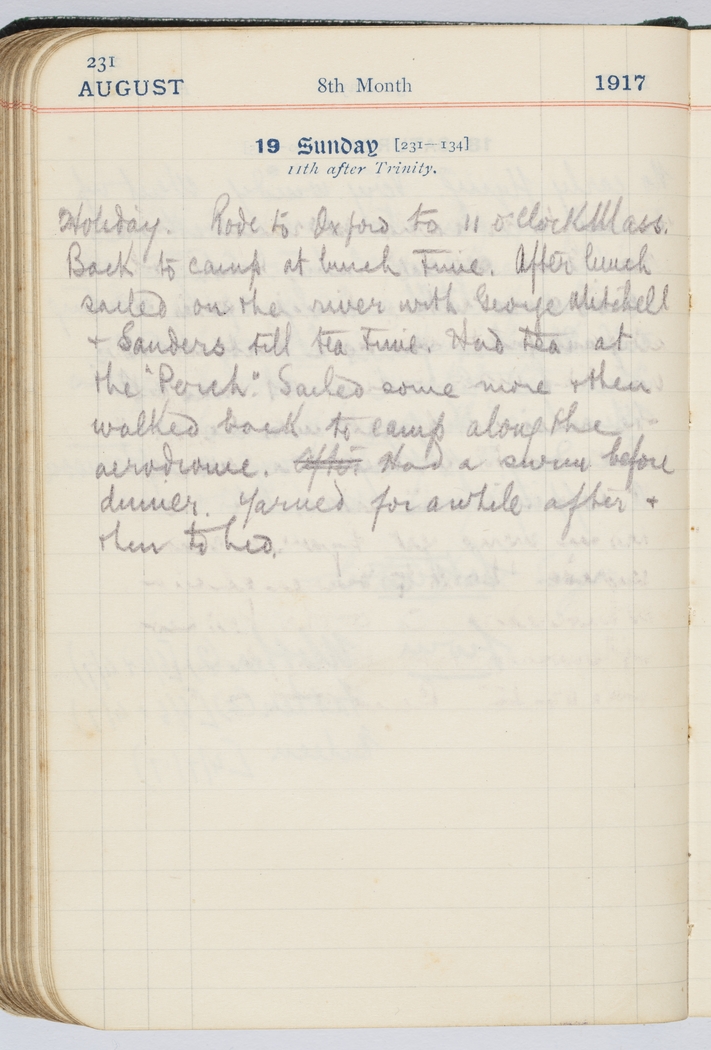 231
AUGUST 8th Month 1917
19 Sunday [231—134]
11th after Trinity.
Holiday. Rode to Oxford to 11 o'clock Mass.
Back to camp at lunch time. After lunch
sailed on the river with George Mitchell
+ Sanders till tea time. Had tea at
the "Perch". Sailed some more + then
walked back to camp along the
aerodrome. After. Had a swim before
dinner. Yarned for awhile after +
then to bed.